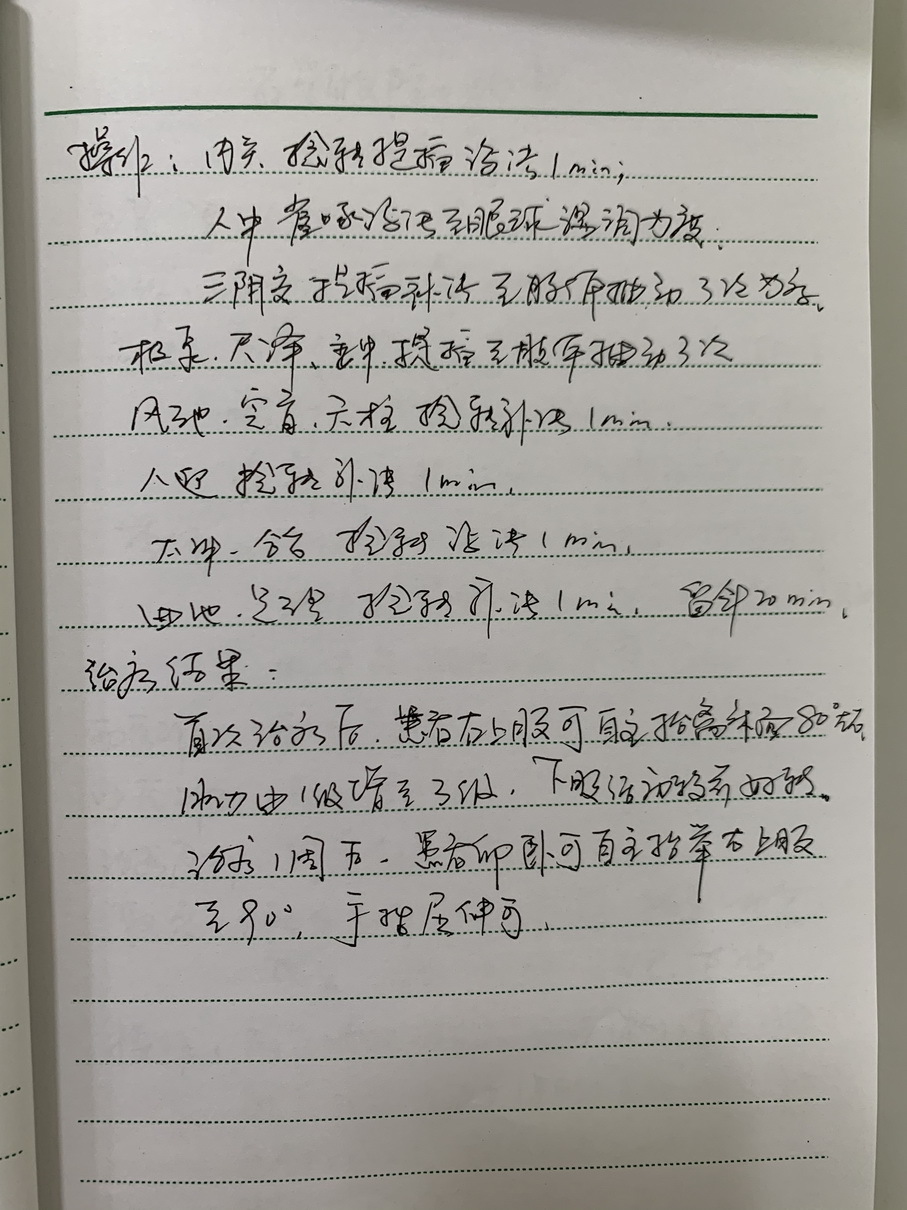 操作：内关、捻转提插泻法1min；
人中雀啄泻法至眼球湿润为度.
三阴交 提插补法 至肢体抽动3次为度、
极泉、尺泽、委中、提插至肢体抽动3次
风池、完骨、天柱 捻转补法1min.
人迎 捻转补法1min.
太冲、合谷 捻转泻法1min.
曲池、足三里 捻转补法1min, 留针20min.
治疗结果：
首次治疗后, 患者右上肢可自主抬离床面80°左右,
肌力由1级增至3级, 下肢活动较前好转.
治疗1周后, 患者仰卧可自主抬举右上肢
至90°, 手指屈伸可.